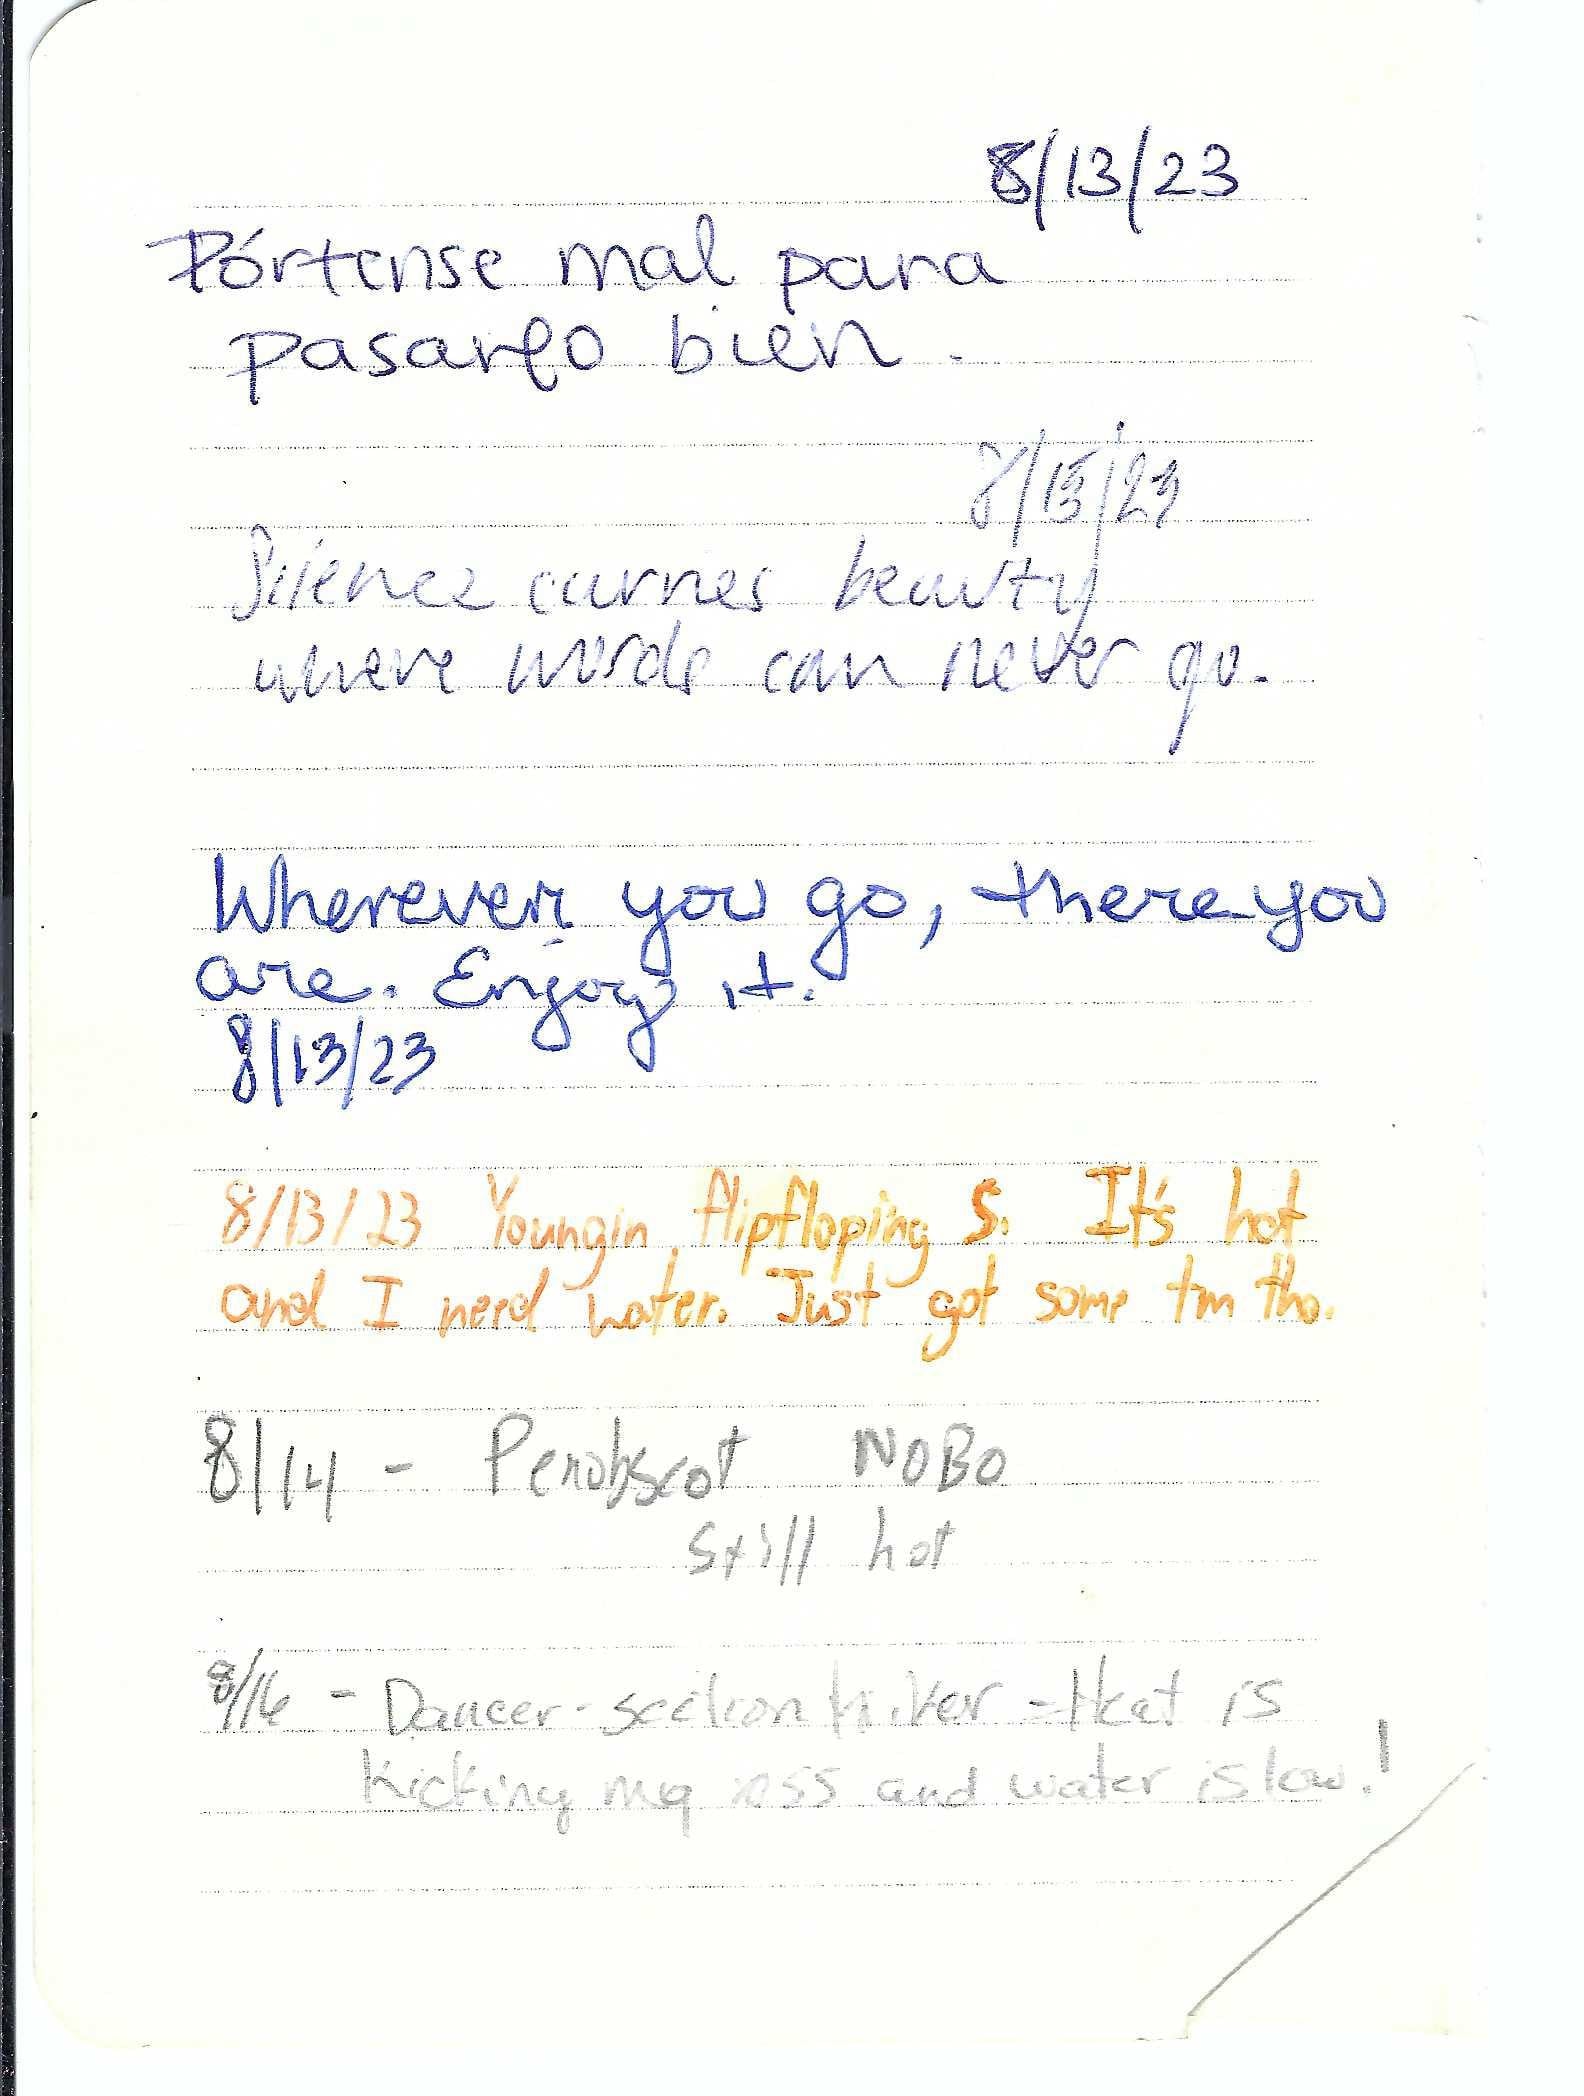 8/13/23
Pórtense mal para
pasarlo bien.
8/13/23
Silence carries beauty
where words can never go.
Wherever you go, there you
are. Enjoy it.
8/13/23
8/13/23 Youngin flipfloping S. It's hot
and I need water. Just got some tm tho.
8/14 - Penobscot NOBO
still hot
8/16 - Dancer - section hiker - Heat is
kicking my ass and water is low!